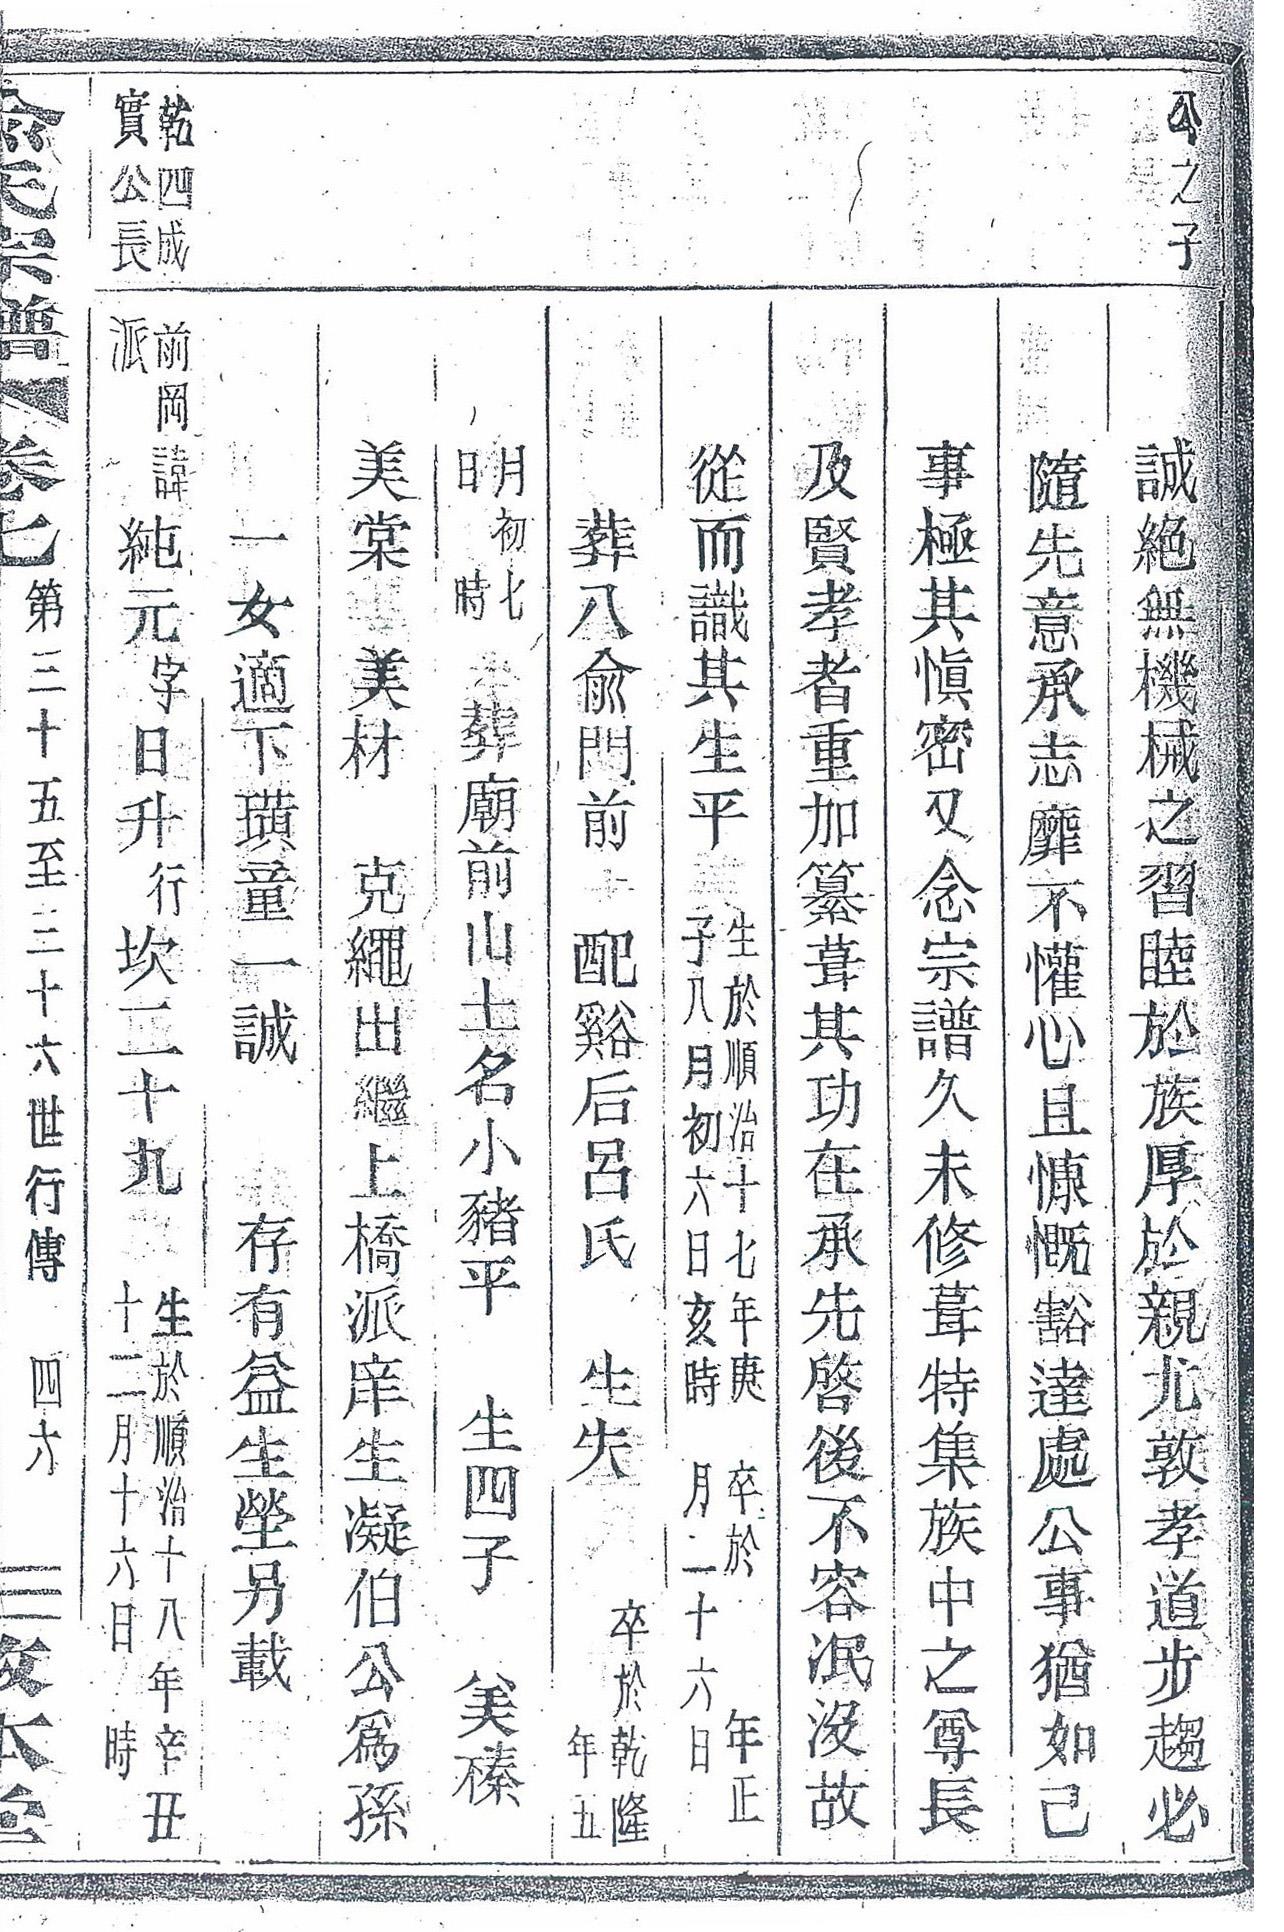 公之子
誠絕無機械之習睦於族厚於親尤敦孝道步趨必
隨先意承志靡不懽心且慷慨豁達處公事猶如己
事極其愼密又念宗譜久未修葺特集族中之尊長
及賢孝者重加纂葺其功在承先啓後不容泯沒故
從而識其生平
生於順治十七年庚
子八月初六日亥時
卒於 年正
月二十六日
葬八俞門前 配谿后呂氏 生失
卒於乾隆
年五
月初七
日 時
葬廟前山土名小豬平 生四子 美榛
美棠 美材 克繩出繼上橋派庠生凝伯公爲孫
一女適下璜童一誠 存有益生塋另載
乾四成
實公長
前岡
派
諱純元字日升行坎二十九
生於順治十八年辛丑
十二月十六日 時
俞氏宗譜 卷七 第三十五至三十六世行傳 四六 敦本堂